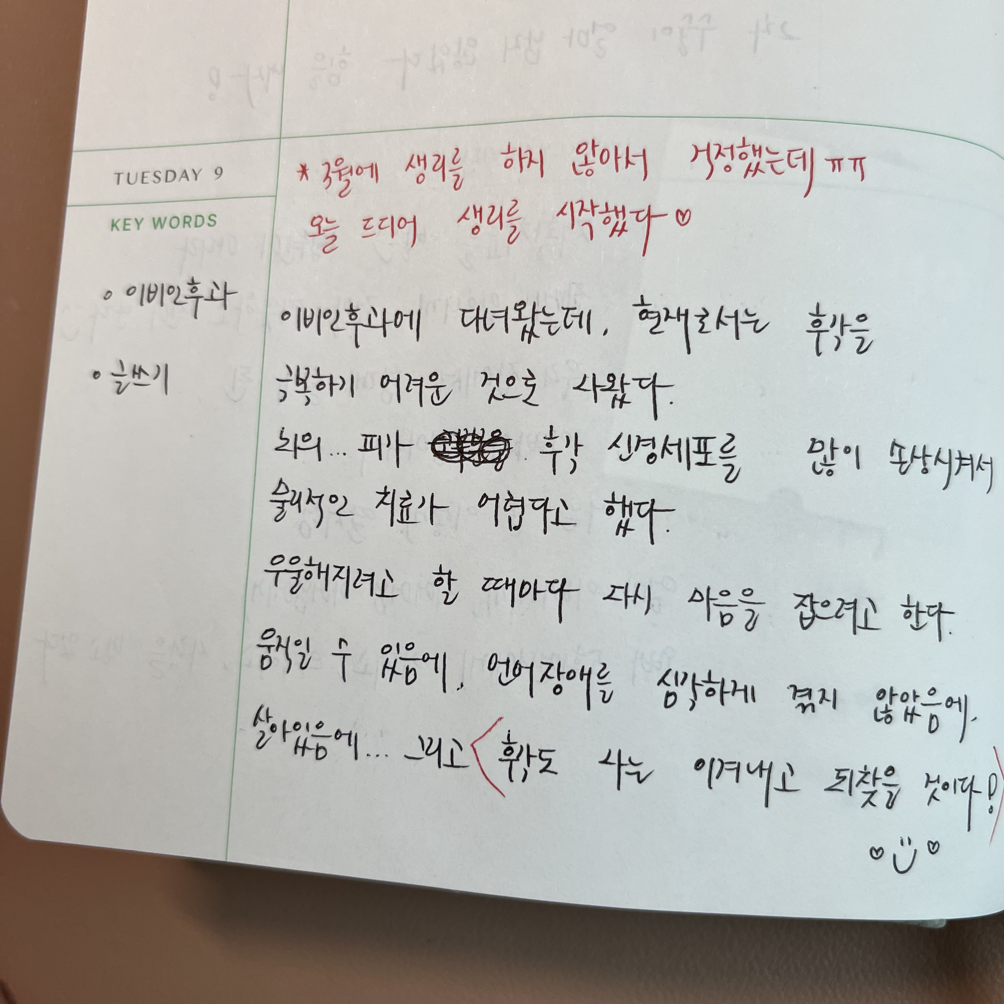 TUESDAY 9
* 3월에 생리를 하지 않아서 걱정했는데 ㅠㅠ
오늘 드디어 생리를 시작했다 ♡
KEY WORDS
○ 이비인후과
○ 글쓰기
이비인후과에 다녀왔는데, 현재로서는 후각을
극복하기 어려운 것으로 나왔다.
뇌의... 피가 후각 신경세포를 많이 손상시켜서
물리적인 치료가 어렵다고 했다.
우울해지려고 할 때마다 다시 마음을 잡으려고 한다.
움직일 수 있음에, 언어장애를 심각하게 겪지 않았음에,
살아있음에... 그리고 <후각도 나는 이겨내고 되찾을 것이다!>
♡ ♡